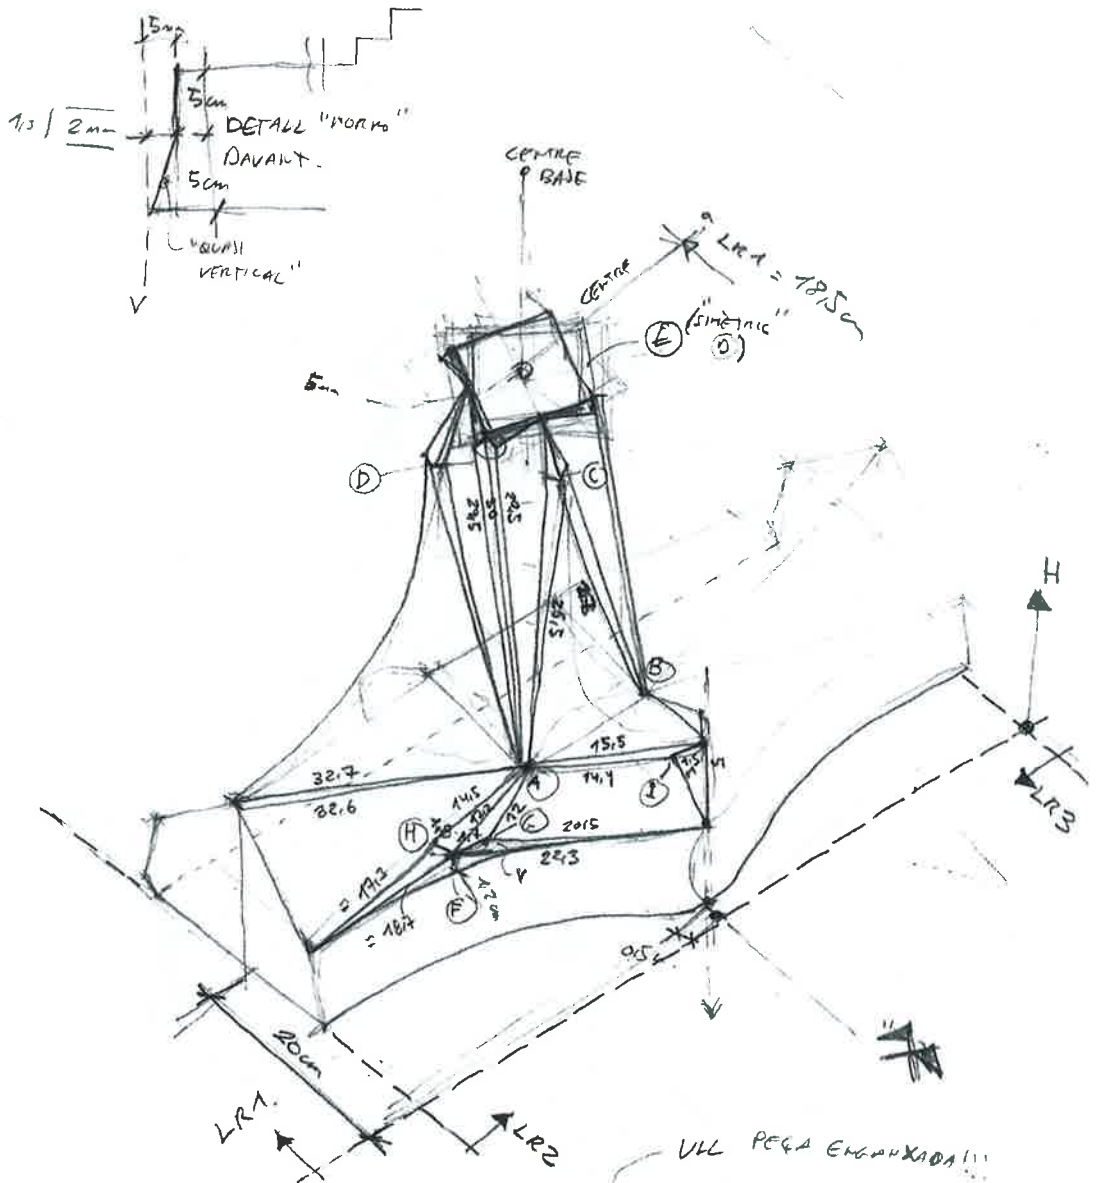 5mm
5cm
1,5 / 2mm
DETALL "MORRO"
DAVANT.
5cm
"QUASI
VERTICAL"
V
CENTRE
BASE
CENTRE
LR1 = 18,5cm
E ("SIMÈTRIC"
D)
5mm
D
C
29,5
30
29,5
25,5
H
B
15,5
14,4
32,7
32,6
A
14,5
1,5
5
LR3
H
1,7
20,5
22,3
= 17,3
F
1,2cm
= 18,7
0,5
20cm
LR1.
LR2
VLL PEÇA ENGANXADA!!!